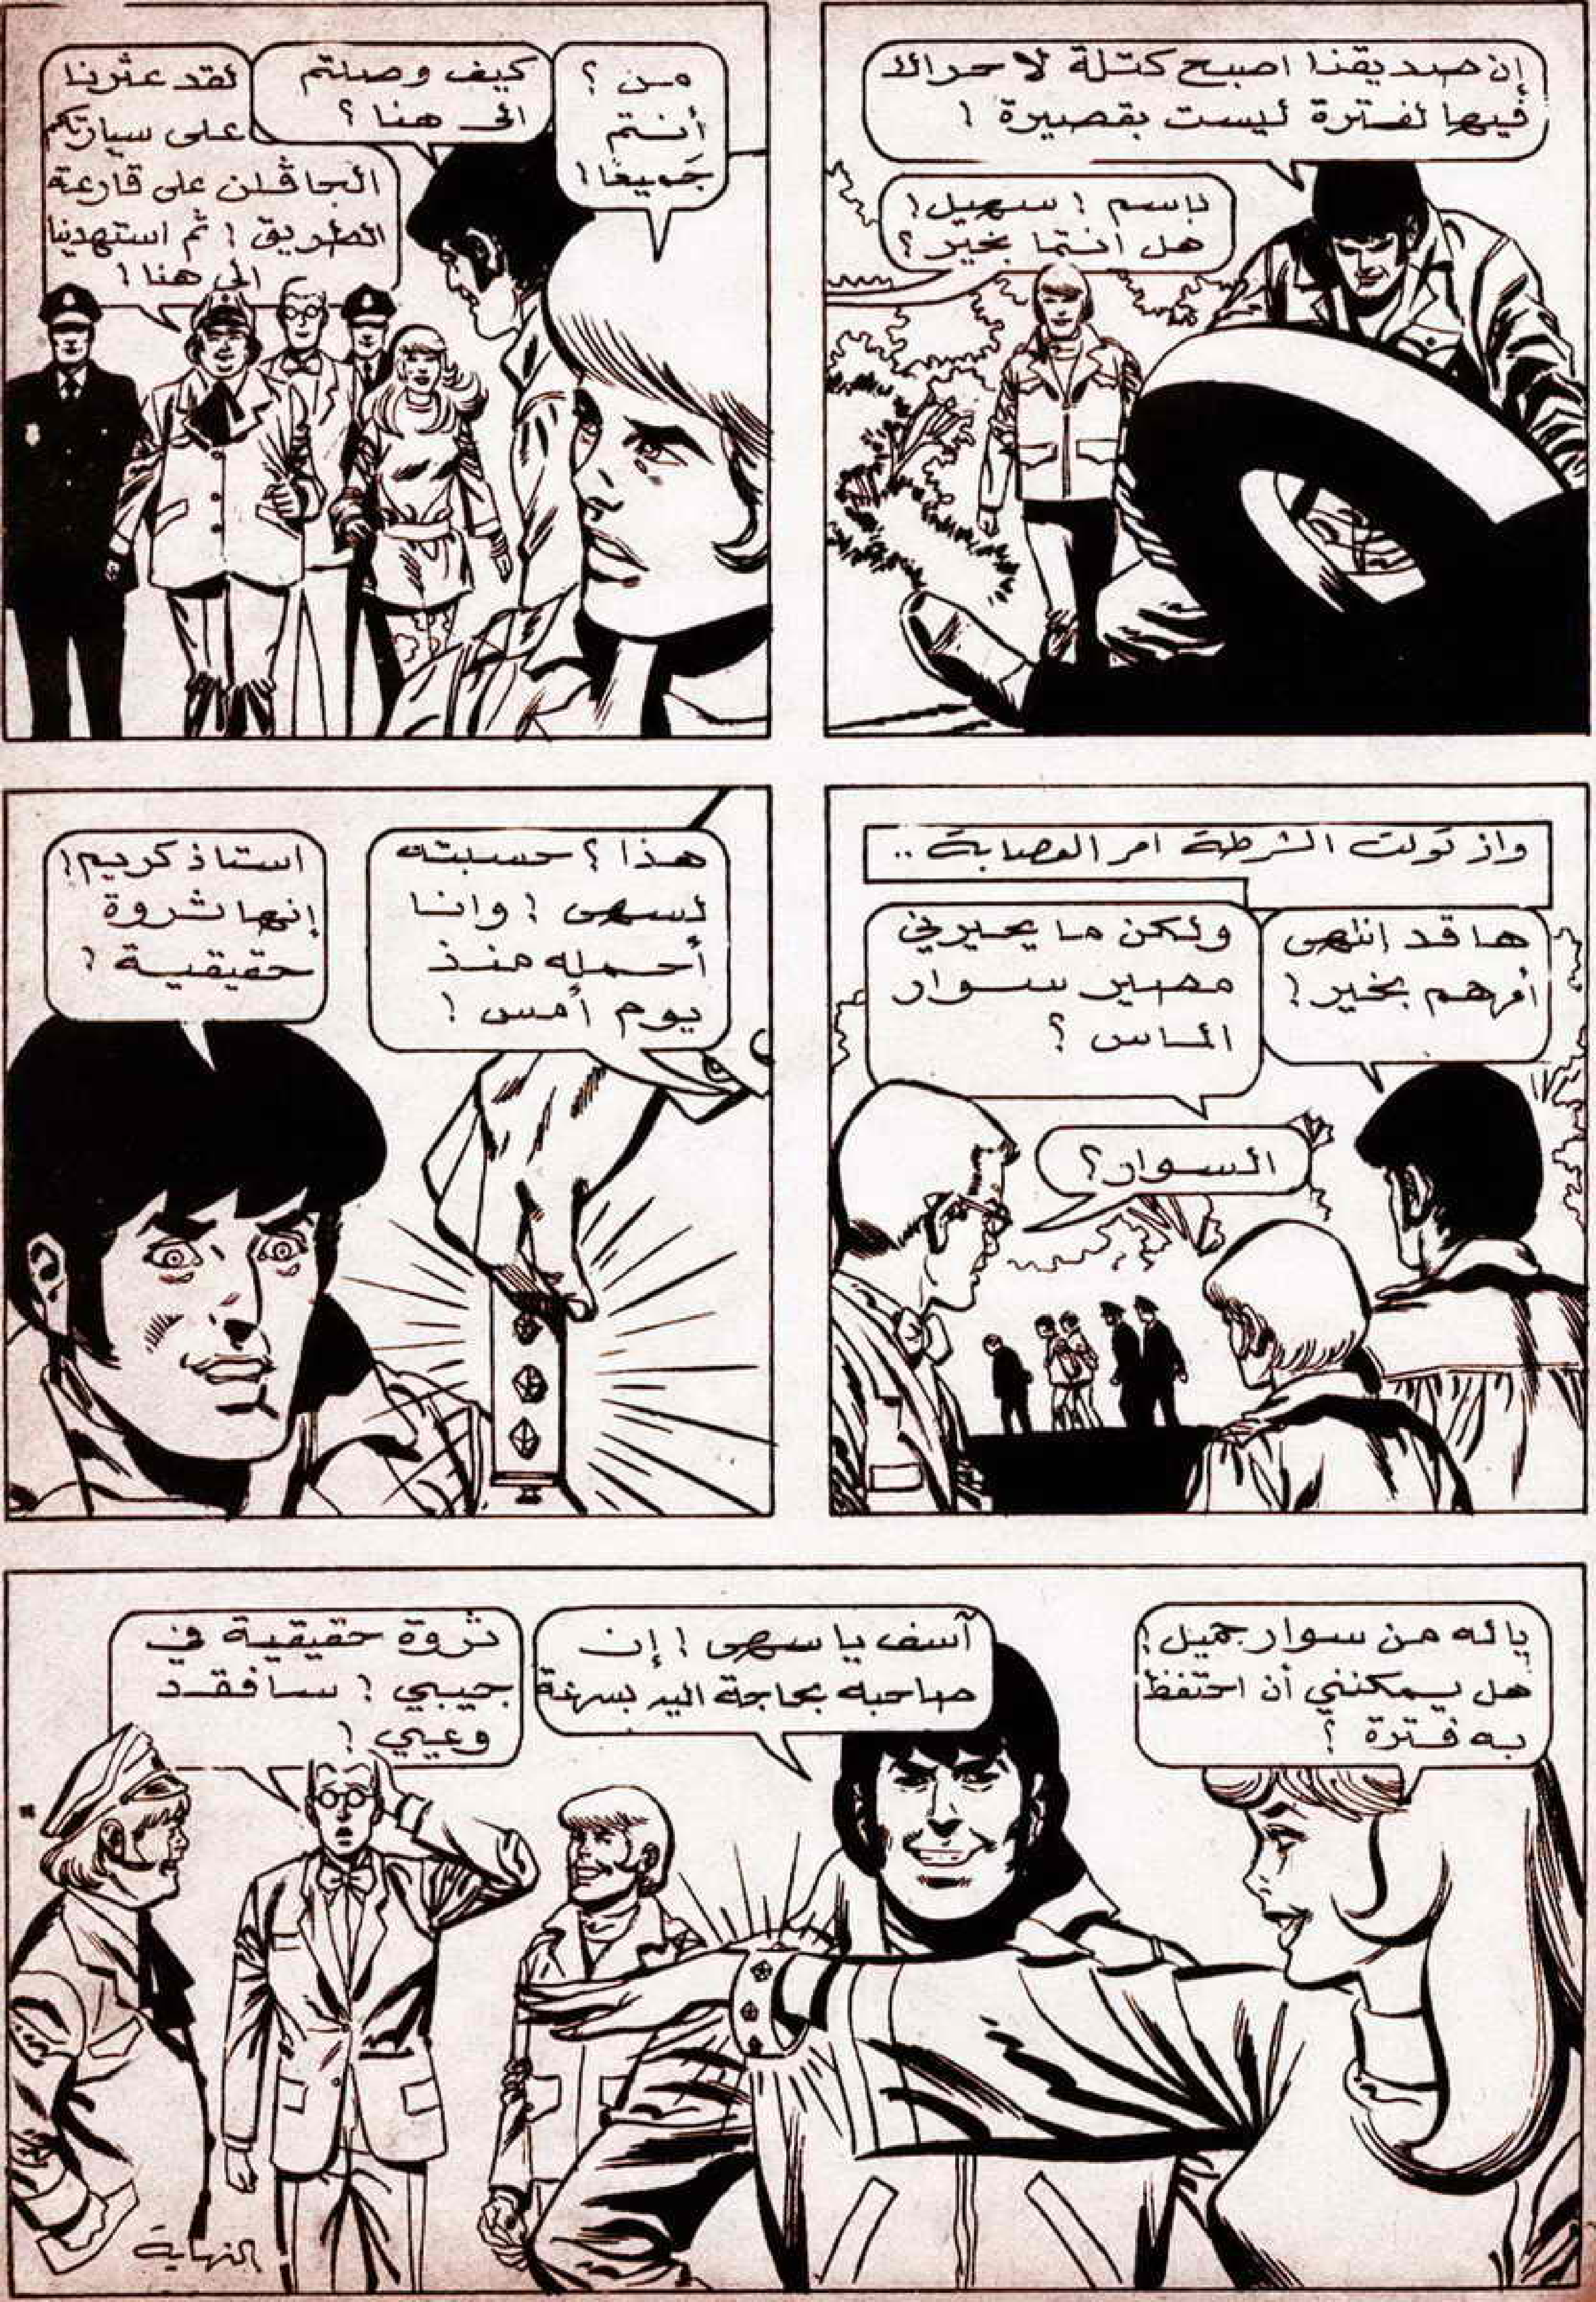 إن صديقنا اصبح كتلة لا حراك
فيها لفترة ليست بقصيرة !
باسم ! سهيل !
هل انتما بخير ؟
من ؟
أنتم
جميعًا !
كيف وصلتم
الى هنا ؟
لقد عثرنا
على سيارتكم
الجاڤلن على قارعة
الطريق ! ثم استهدينا
الى هنا !
واذ تولت الشرطة امر العصابة ..
ها قد إنتهى
أمرهم بخير !
ولكن ما يحيرني
مصير سوار
الماس ؟
السوار ؟
هذا ؟ حسبته
لسهى ! وانا
أحمله منذ
يوم أمس !
استاذ كريم !
إنها ثروة
حقيقية !
ياله من سوار جميل !
هل يمكنني أن احتفظ
به فترة ؟
آسف يا سهى ! إن
صاحبه بحاجة اليه بسرعة
ثروة حقيقية في
جيبي ! سافقد
وعيي !
النهاية